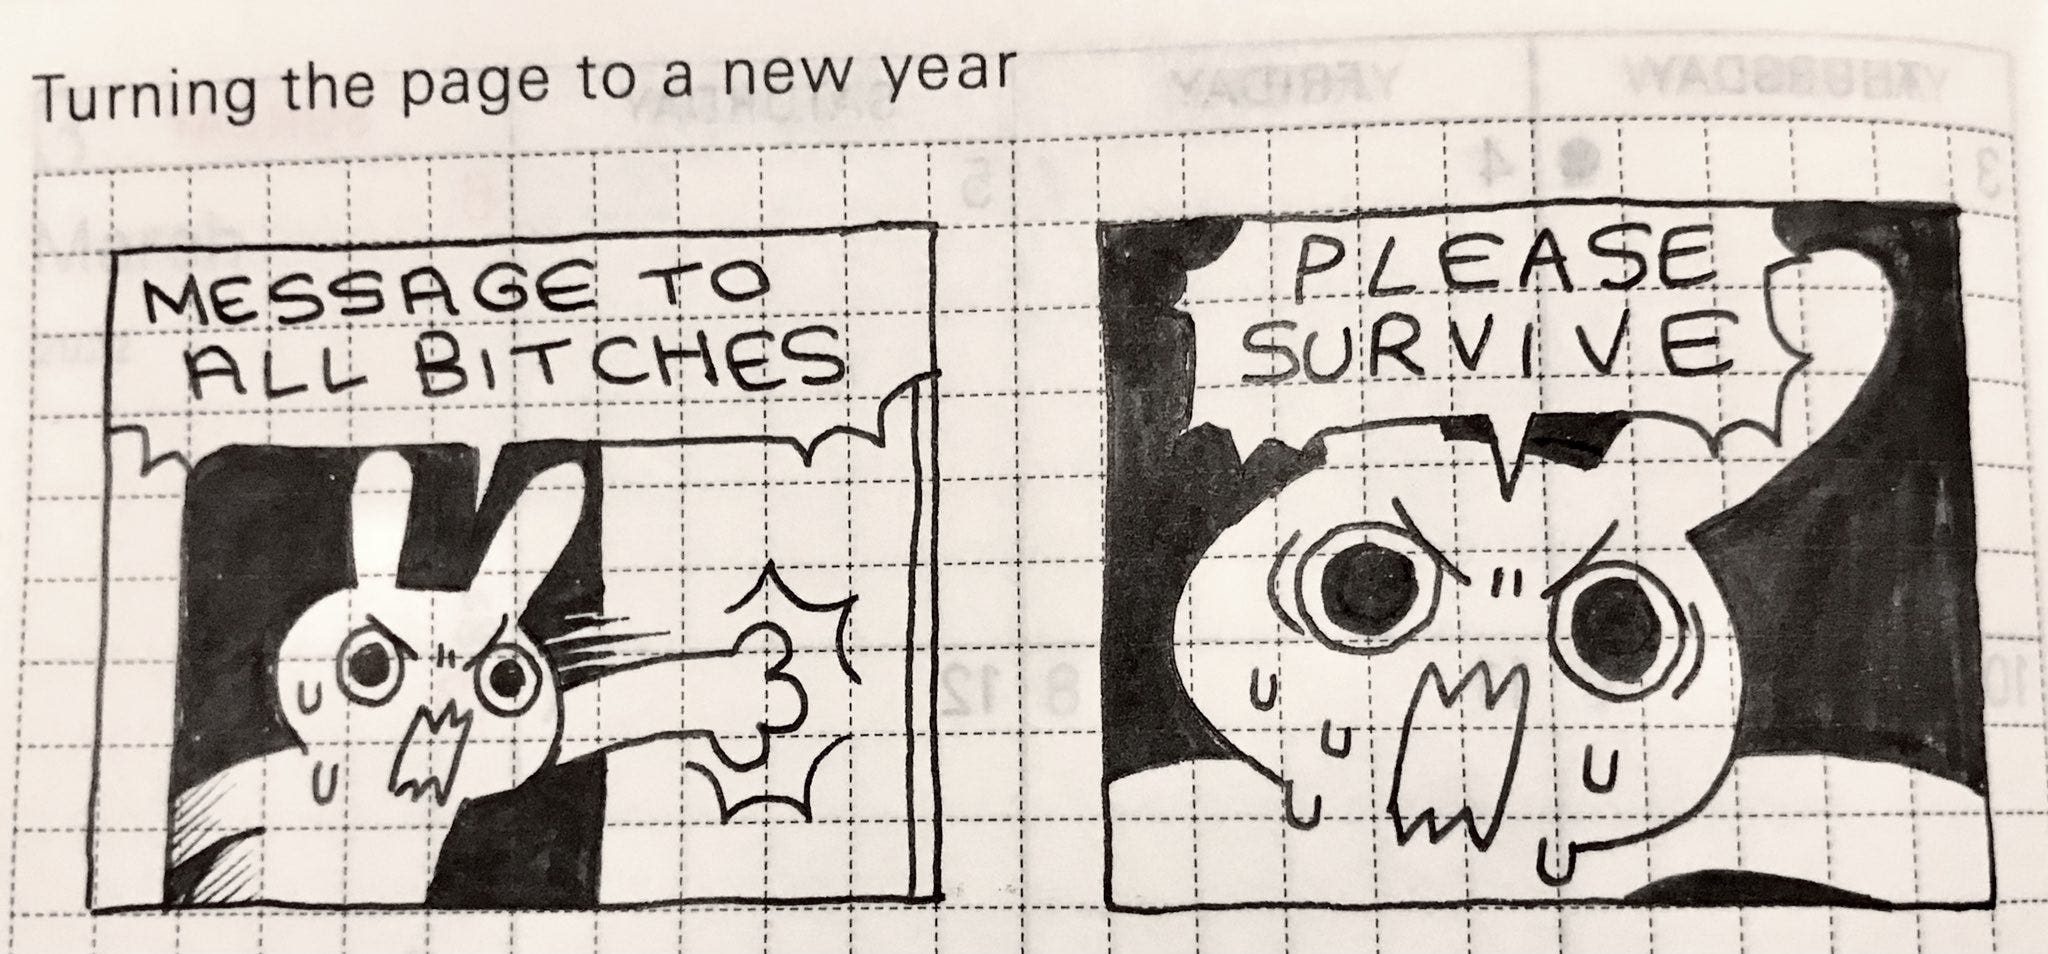 Turning the page to a new year
MESSAGE TO
ALL BITCHES
PLEASE
SURVIVE